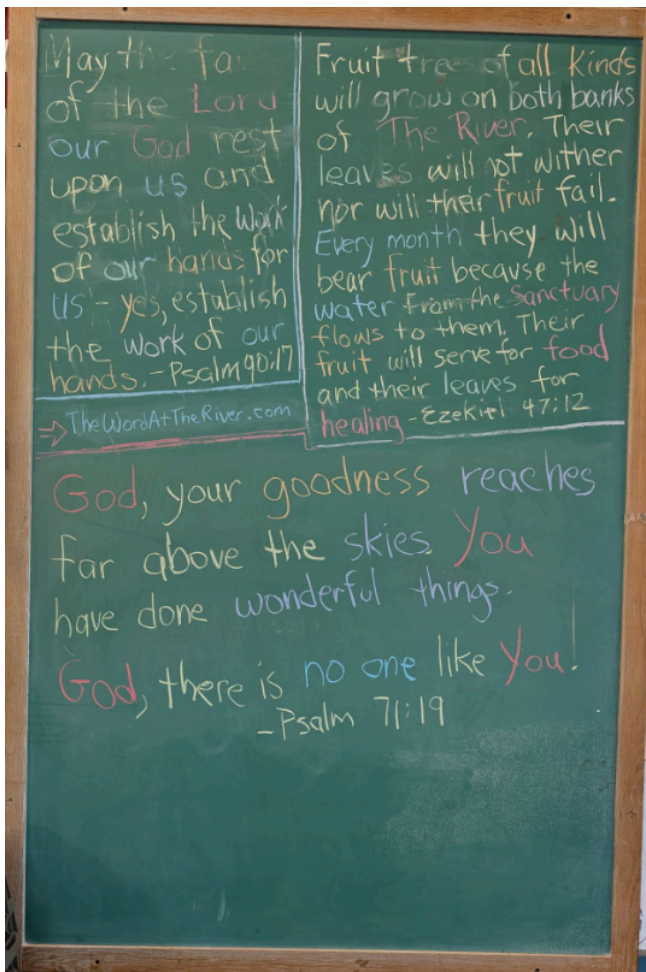 May the fa
of the Lord
our God rest
upon us and
establish the work
of our hands for
us - yes, establish
the work of our
hands. - Psalm 90:17
→ TheWordAtTheRiver.com
Fruit tree of all kinds
will grow on both banks
of The River. Their
leaves will not wither
nor will their fruit fail.
Every month they will
bear fruit because the
water from the sanctuary
flows to them. Their
fruit will serve for food
and their leaves for
healing - Ezekiel 47:12
God, your goodness reaches
far above the skies. You
have done wonderful things.
God, there is no one like You!
- Psalm 71:19